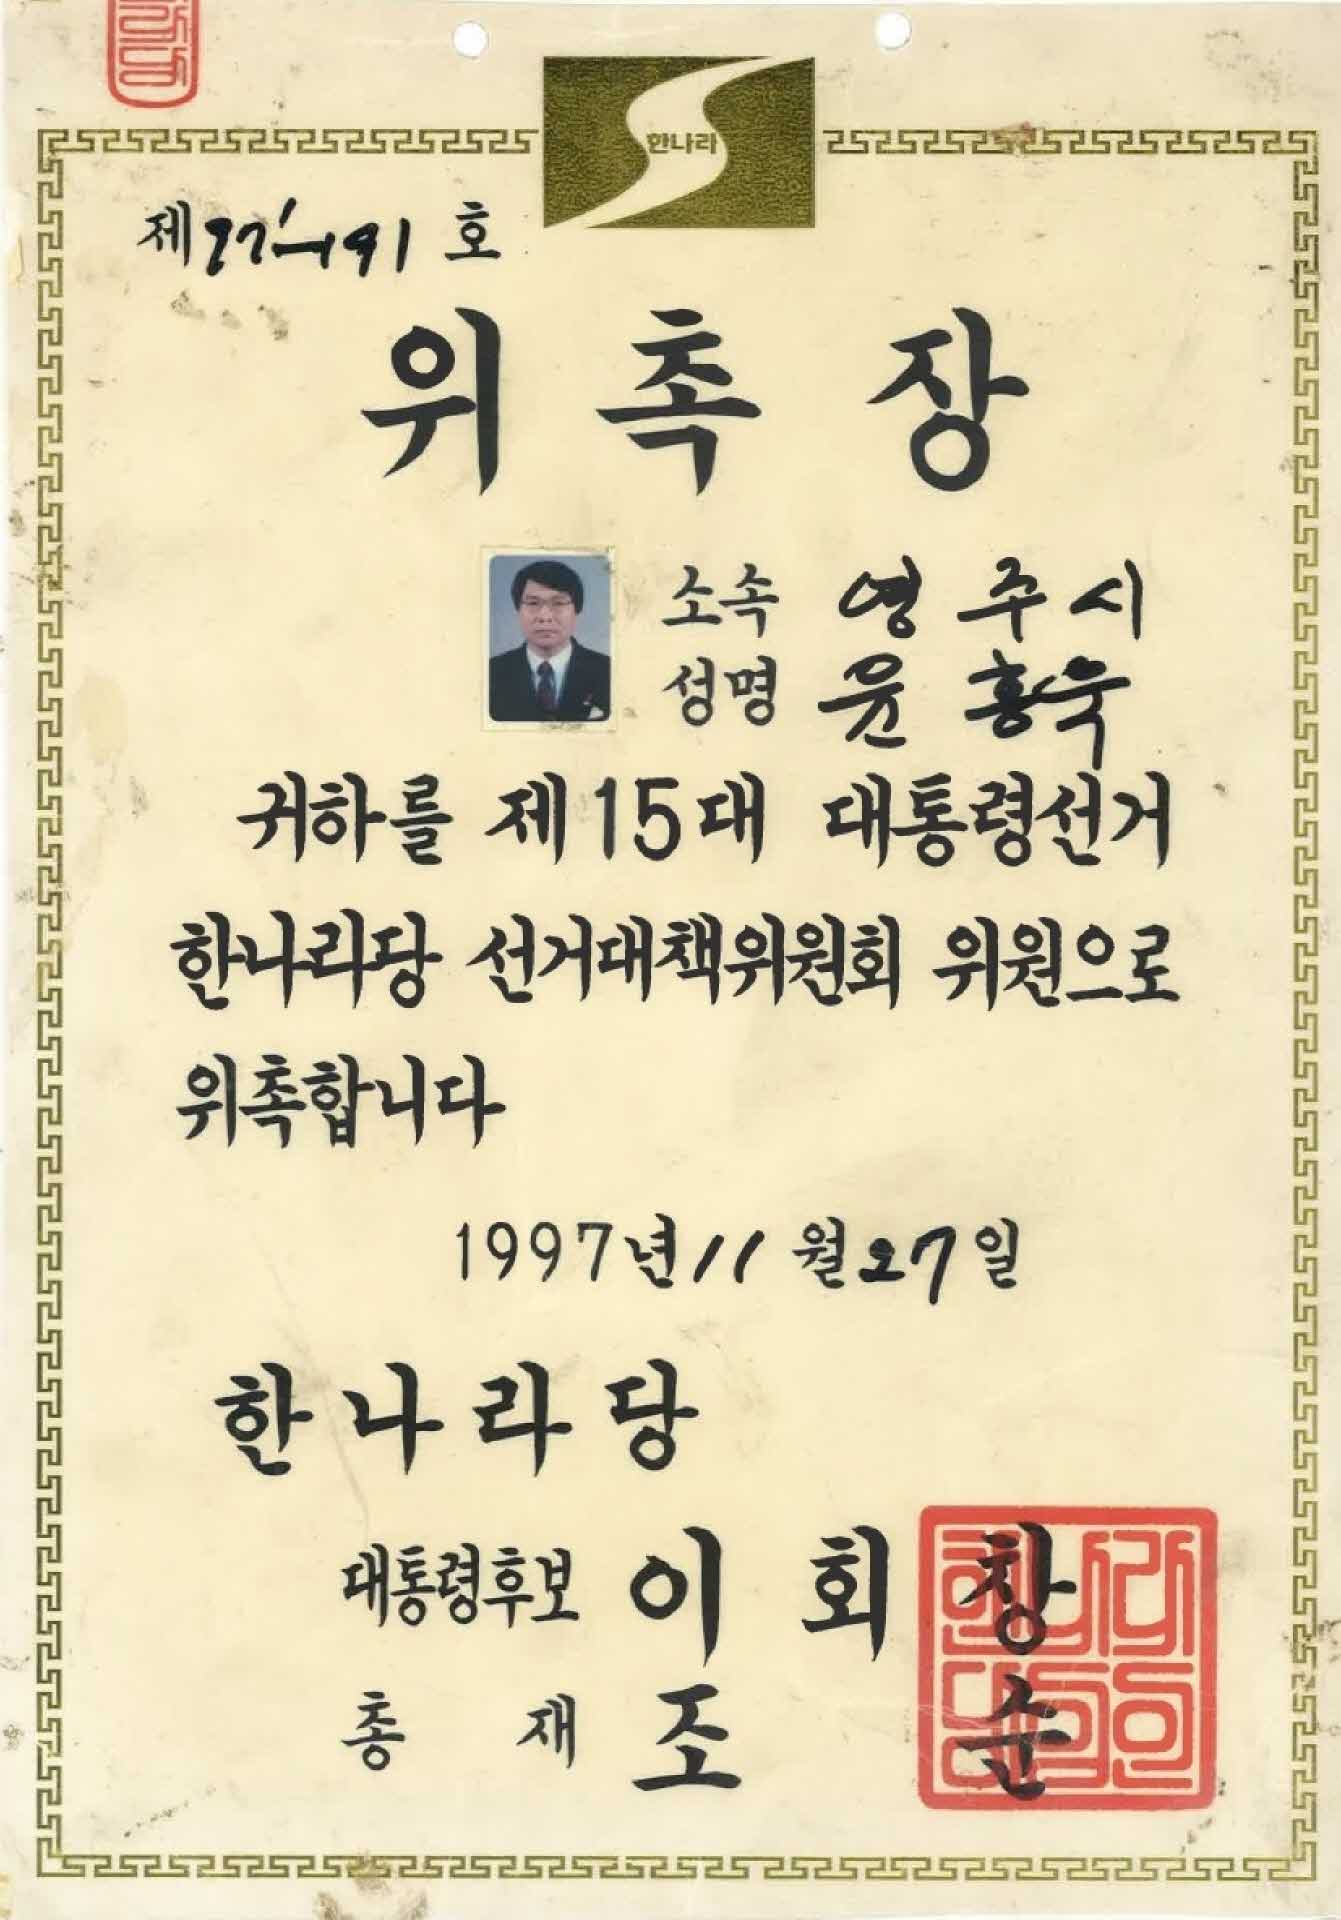 한나라
제 97-191 호
위촉장
소속 영주시
성명 윤홍욱
귀하를 제15대 대통령선거
한나라당 선거대책위원회 위원으로
위촉합니다
1997년 11월 27일
한나라당
대통령후보 이회창
총재 조순